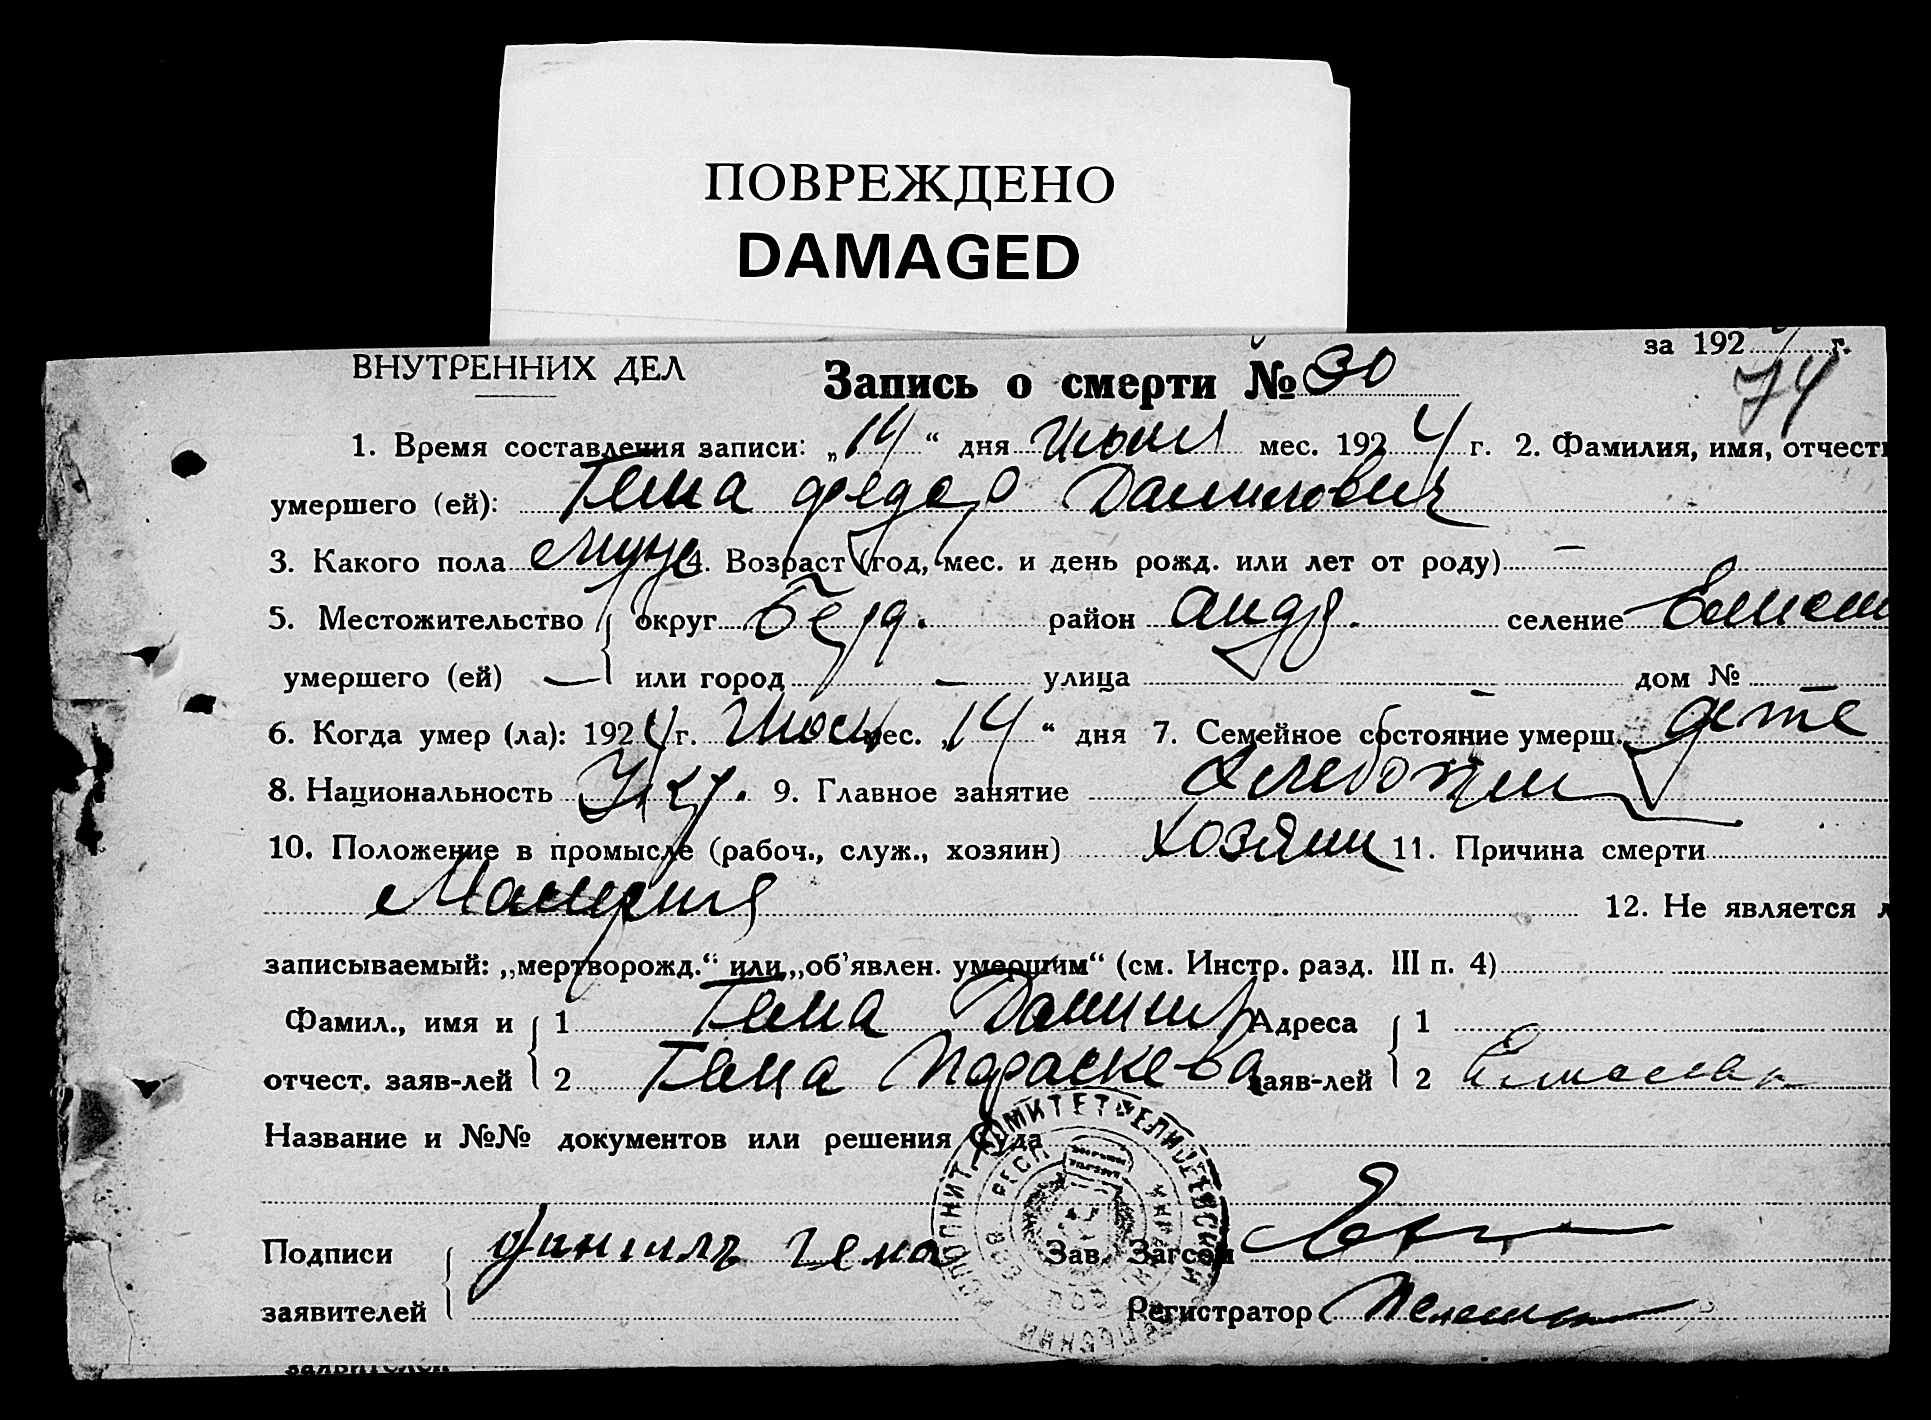 ПОВРЕЖДЕНО
DAMAGED
ВНУТРЕННИХ ДЕЛ
Запись о смерти № 30
за 192 г.
74
1. Время составления записи: „14“ дня Июня мес. 1924 г. 2. Фамилия, имя, отчест
умершего (ей): Гена Федор Данилович
3. Какого пола муж 4. Возраст (год, мес. и день рожд. или лет от роду) —
5. Местожительство округ Берд. район Андр. селение
умершего (ей) — или город — улица дом №
6. Когда умер (ла): 1924 г. Июня мес. „14“ дня 7. Семейное состояние умерш.
8. Национальность Укр. 9. Главное занятие
10. Положение в промысле (рабоч., служ., хозяин) хозяин 11. Причина смерти
Малярия 12. Не является
записываемый: „мертворожд.“ или „об'явлен. умершим“ (см. Инстр. разд. III п. 4)
Фамил., имя и 1 Гена Даниил Адреса 1
отчест. заяв-лей 2 Гена Параскева заяв-лей 2
Название и №№ документов или решения суда
ИСПОЛНИТ. КОМИТЕТ
Подписи Даниилъ Гена Зав. Загсом
заявителей Регистратор
заявителей